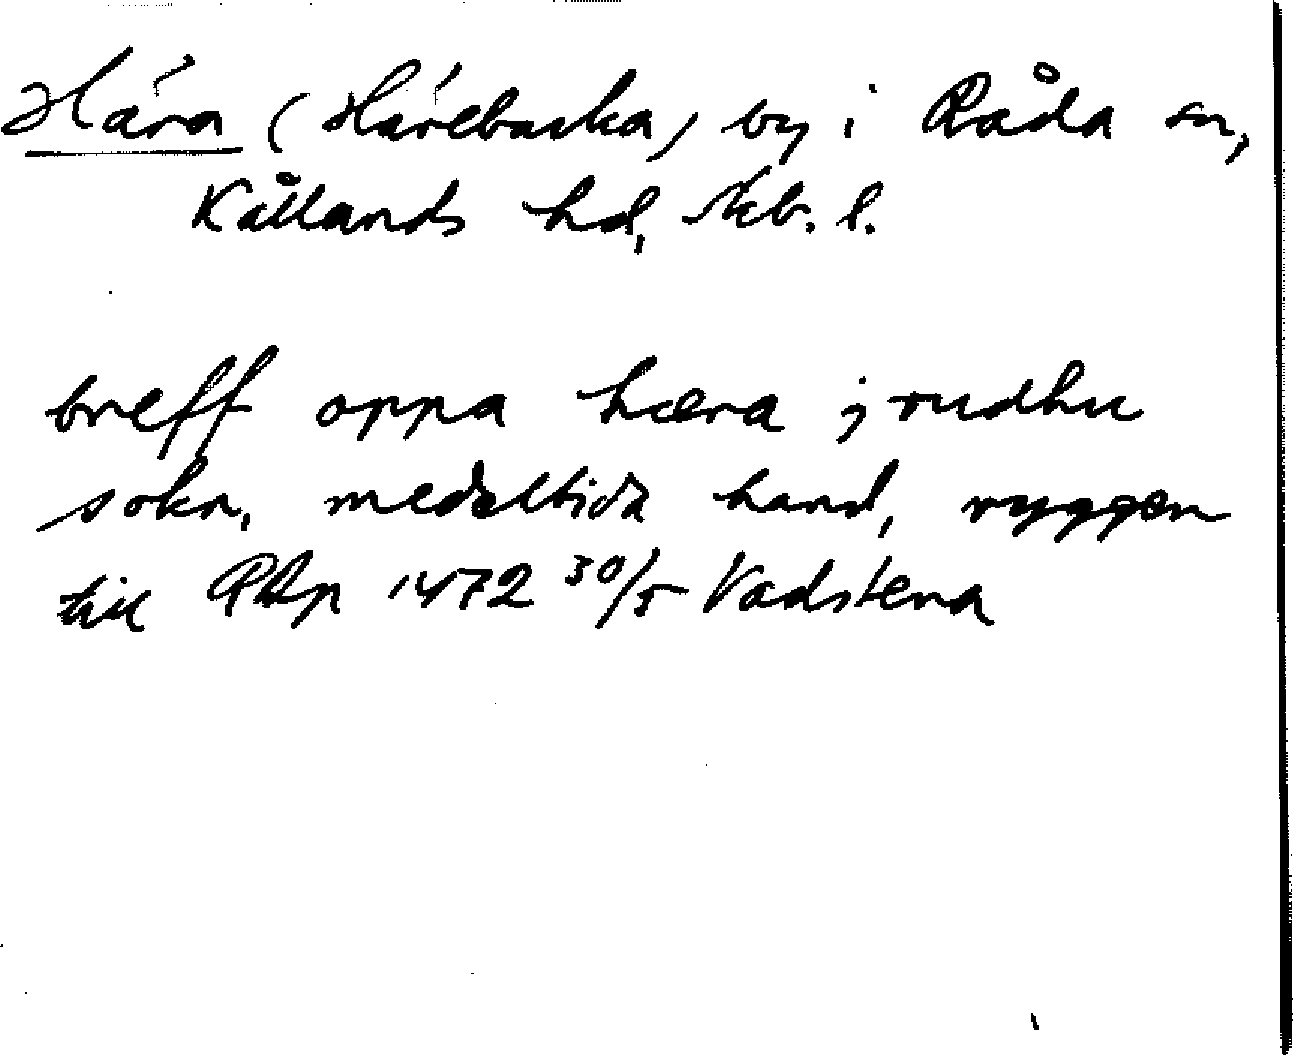 Hára (Hárebacka) by i Råda sn,
Kållands hd, Skb. l.
breff oppa hæra j rudhu
sokn, medeltida hand, ryggen
till RAp 1472 30/5 Vadstena